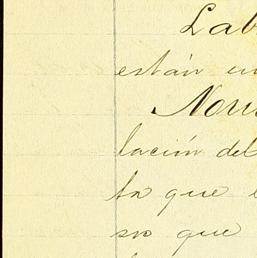 Lab
están en
Nous
lación del
ta que
so que